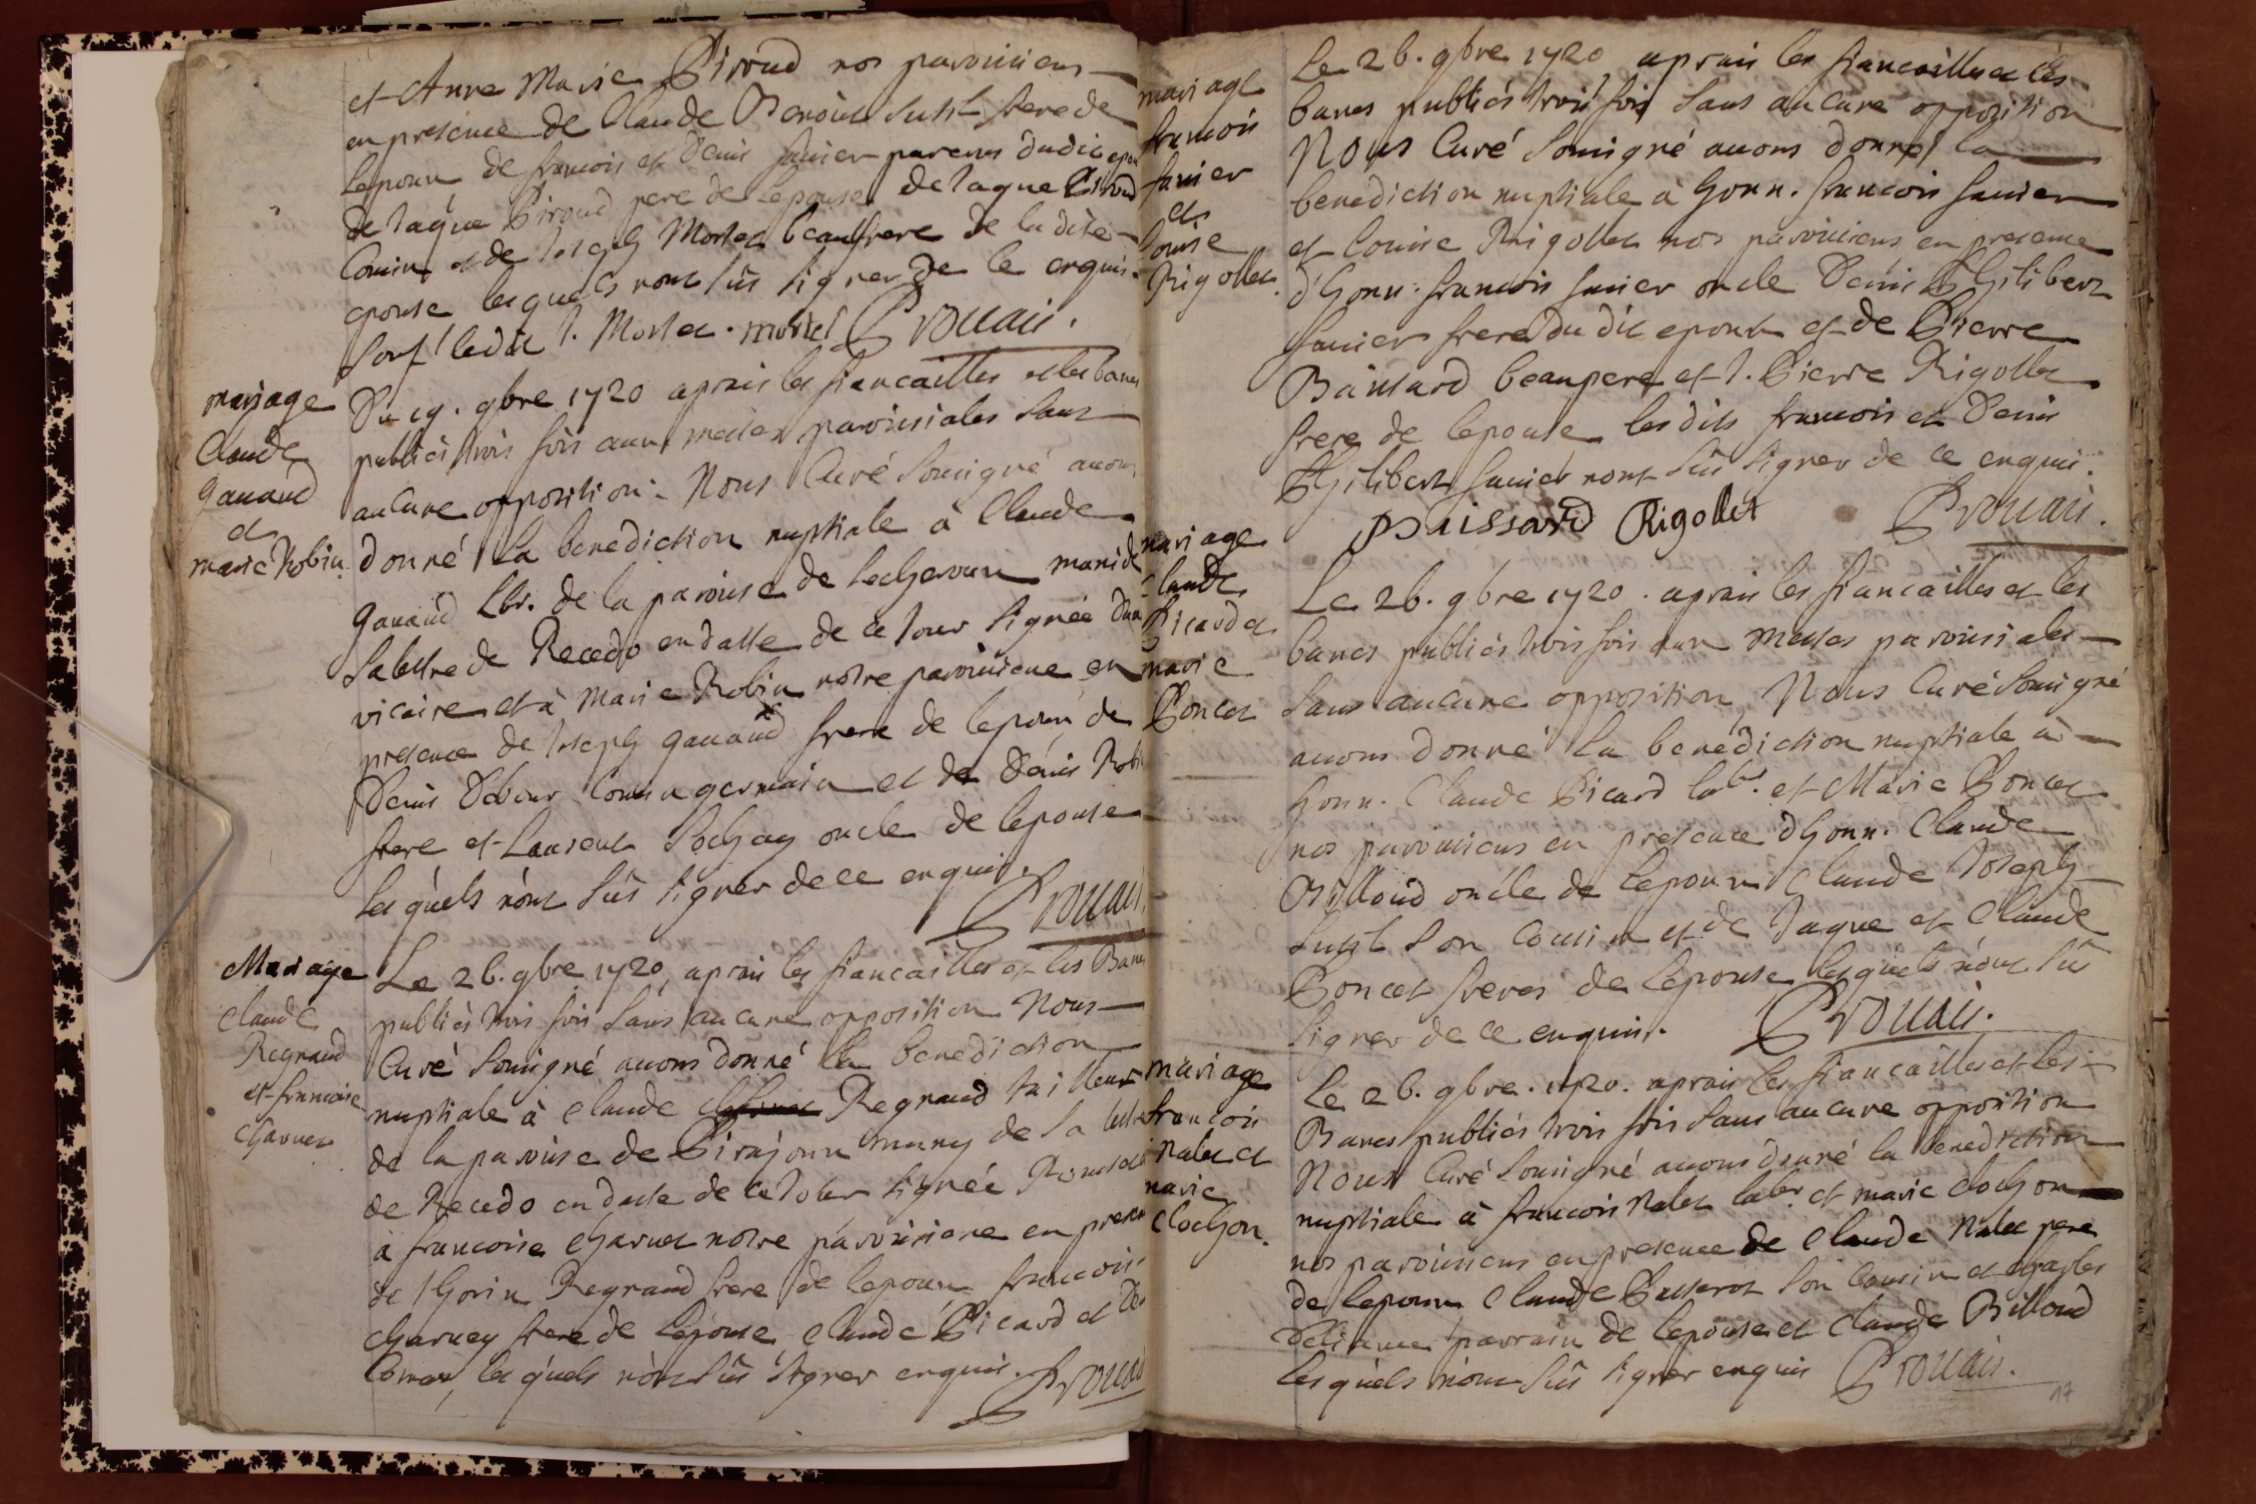 et Anne Marie Piroud nos paroissiens
en presence de Claude Benoist frere de
lepoux de francois et Denis Janier parens dudit epoux
de Iaque Piroud pere de lepouse de Iaque Piroud
Cousin et de Ioseph Mortet beaufrere de la dite
epouse lesquels nont sûs signer de ce enquis
Sauf ledit I. Mortet. mortet Prouais.
mariage
Claude
gauaud
et
marie Robin
Du 19. 9bre 1720 aprais les fiancailles et les bancs
publiés trois fois aux messes paroissiales sans
aucune opposition. Nous Curé Sousigné auons
donné la benediction nuptiale à Claude
gauaud lbr. de la paroisse de muni de
sa lettre de Recedo en datte de ce Jour signée dun
vicaire et à Marie Robin notre paroissiene en
presence de Ioseph gauaud frere de lepoux de
Denis Cousin germain et de Denis Robin
frere et Laurent Sochay oncle de lepouse
lesquels nont sûs signer de ce enquis. Prouais.
Mariage
Claude
Regnaud
et francoise
Charnet
Le 26. 9bre 1720, aprais les fiancailles et les Bancs
publiés trois fois sans aucune opposition Nous
Curé Sousigné auons donné la benediction
nuptiale à Claude Regnaud tailleur
de la paroisse de Pirajoux muny de sa lettre
de Recedo en datte de ce Jour signée
à francoise Charnet notre paroissiene en presence
de Regnaud frere de lepoux francois
Charney frere de lepouse Claude Picard et
lesquels nont sûs signer enquis. Prouais
mariage
francois
Janier
et
Louise
Rigollet.
Le 26. 9bre 1720 aprais les fiancailles et les
bancs publiés trois fois sans aucune opposition
Nous Curé Sousigné auons donné la
benediction nuptiale à honn. francois Janier
et Louise Rigollet nos paroissiens en presence
d'honn: francois Janier oncle Denis Philibert
Janier frere du dit epoux et de Pierre
Buissard beaupere et I. Pierre Rigollet
frere de lepouse lesdits francois et Denis
Philibert Janier nont sûs signer de ce enquis.
Buissard Rigollet Prouais.
mariage
Claude
Picard et
marie
Poncet
Le 26. 9bre 1720. aprais les fiancailles et les
bancs publiés trois fois aux messes paroissiales
sans aucune opposition Nous Curé Sousigné
auons donné la benédiction nuptiale à
honn. Claude Picard lab.r et Marie Poncet
nos paroissiens en presence d'honn. Claude
Billoud oncle de lepoux Claude Ioseph
son Cousin et de Iaque et Claude
Poncet freres de lepouse lesquels nont sûs
signer de ce enquis. Prouais.
mariage
francois
Nalet et
marie
Clochon.
Le 26. 9bre. 1720. aprais les fiancailles et les
Bancs publiés trois fois sans aucune opposition
Nous Curé Sousigné auons donné la benediction
nuptiale à francois Nalet labr. et marie Clochon
nos paroissiens en presence de Claude Nalet pere
de lepoux Claude son Cousin et Charles
parrain de lepouse et Claude Billoud
lesquels nont sûs signer enquis Prouais.
17